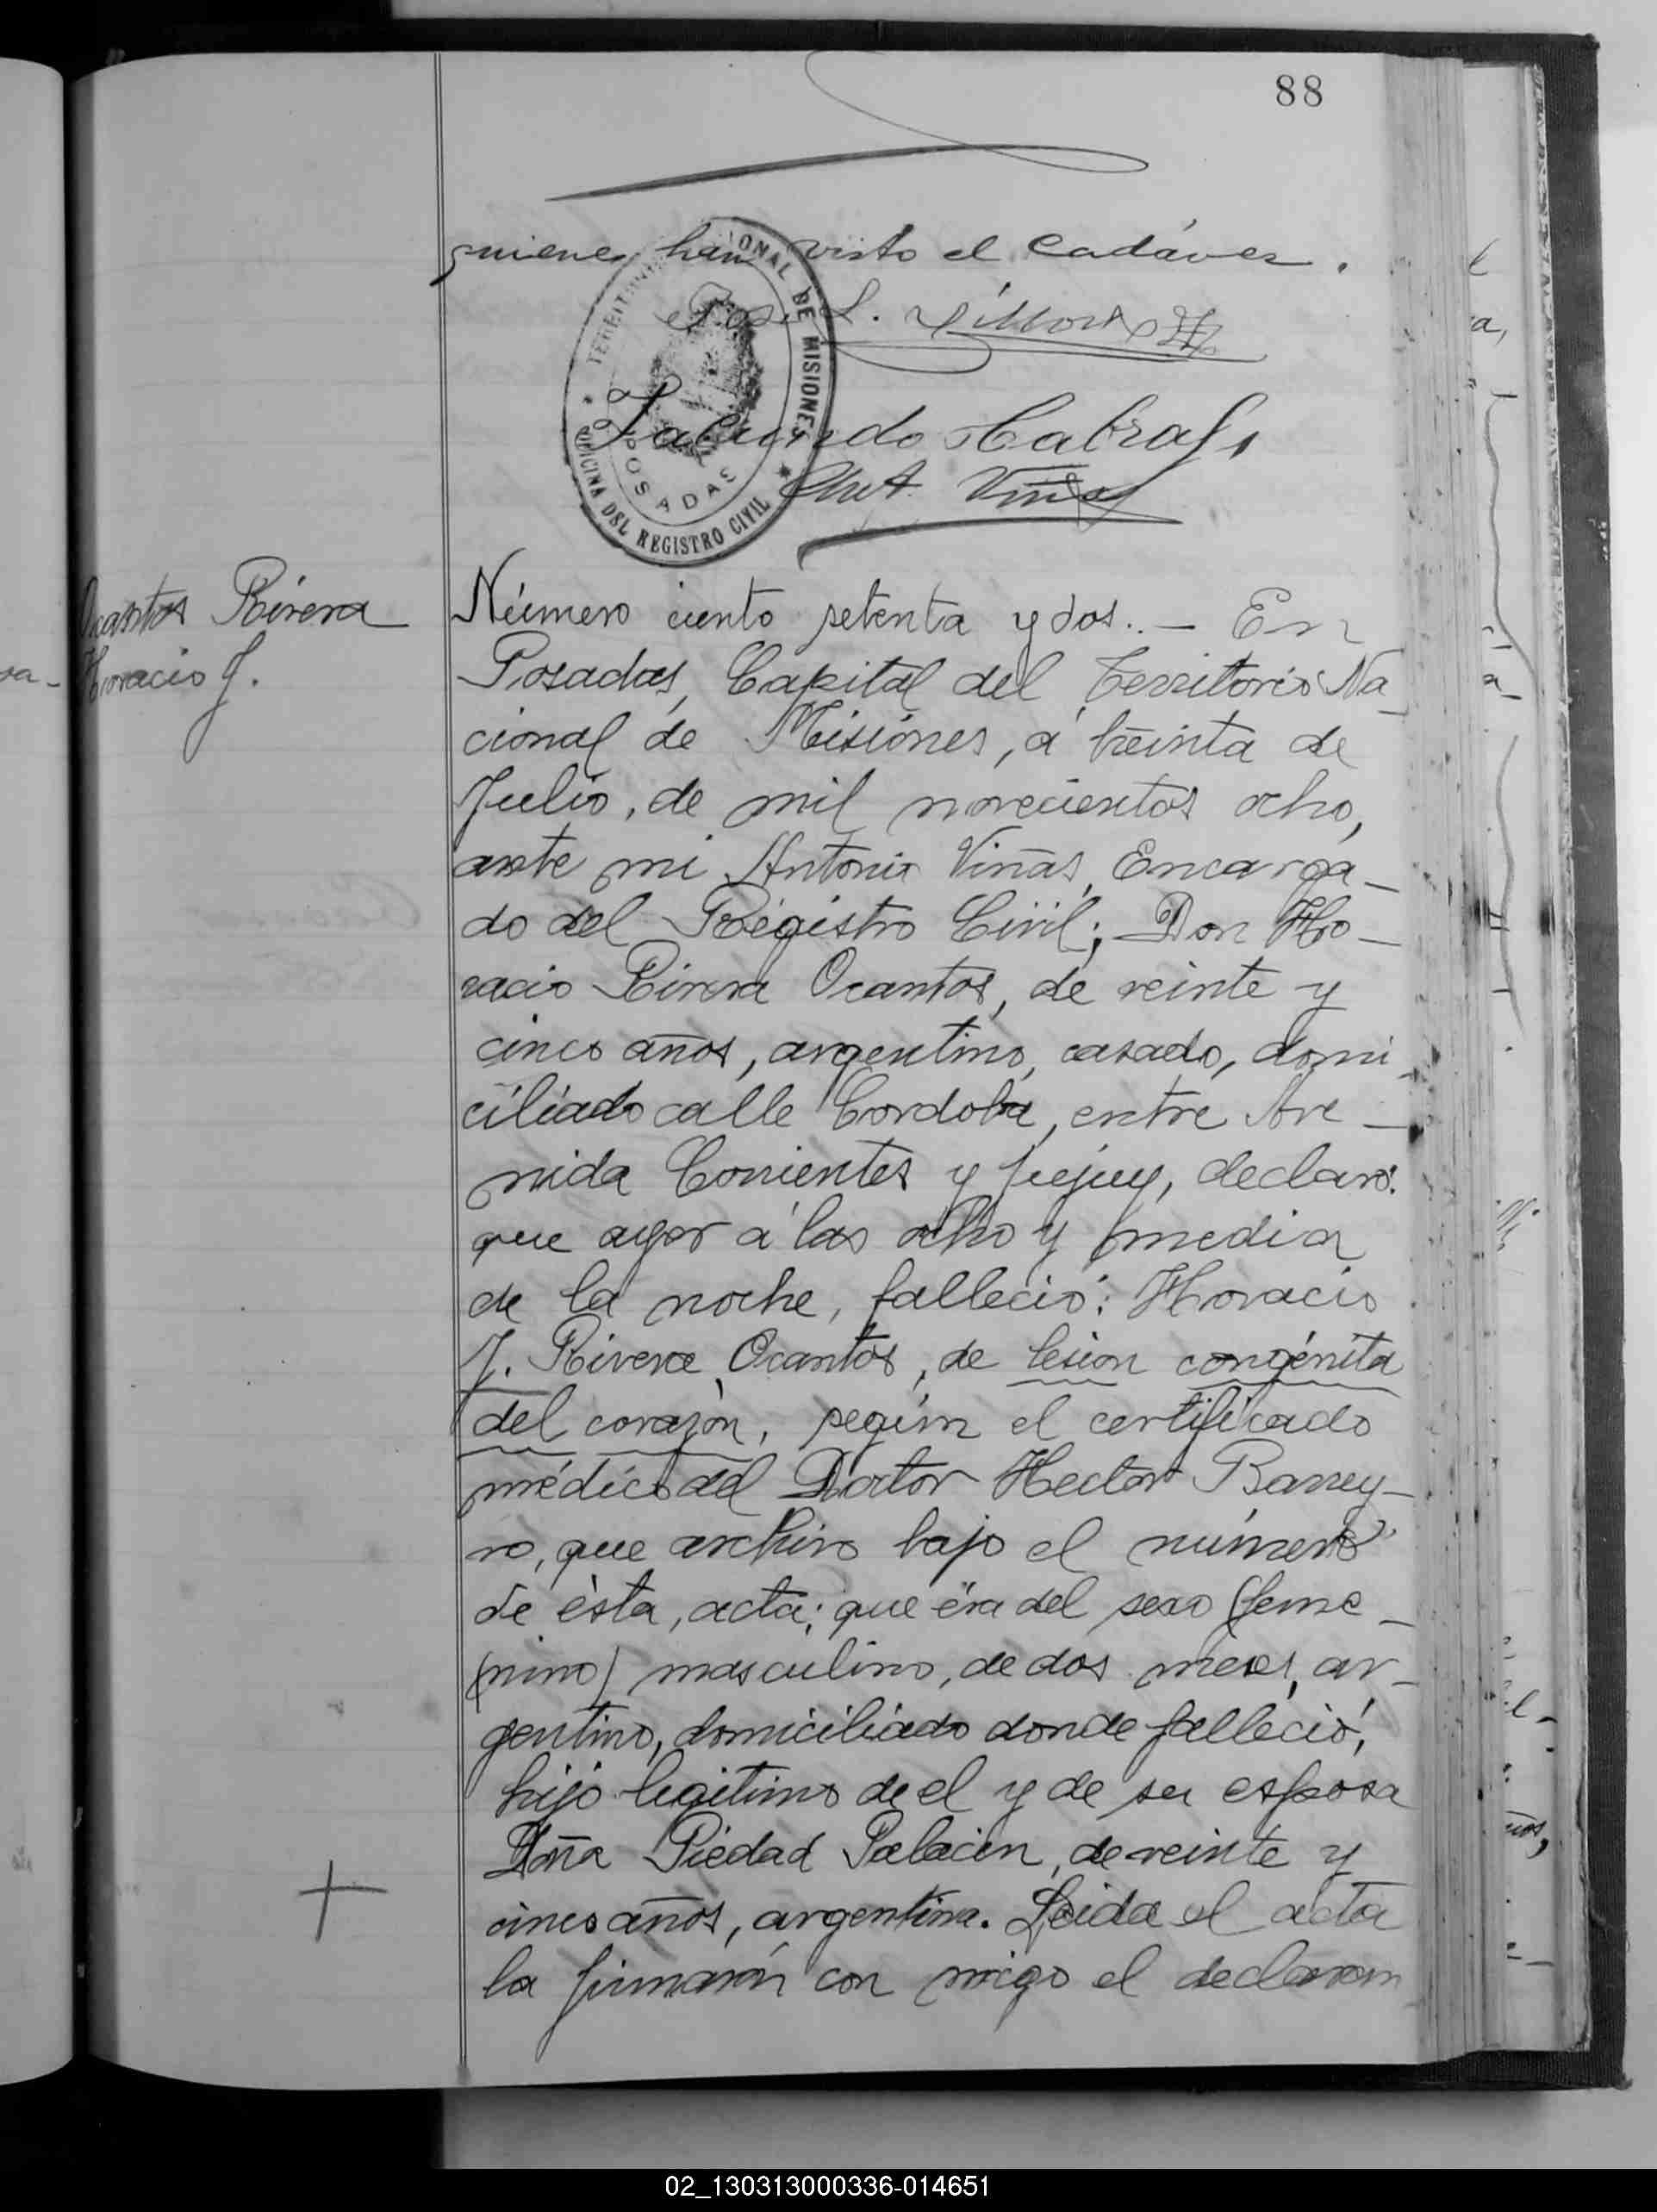 88
quienes han visto el cadáver.
L.
TERRITORIO NACIONAL DE MISIONES
OFICINA DEL REGISTRO CIVIL
POSADAS
Facundo Cabral
Ant. Viñas
Ocantos Rivera
Horacio J.
Número ciento setenta y dos.. — En
Posadas, Capital del Territorio Na_
cional de Misiones, á treinta de
Julio, de mil novecientos ocho,
ante mi Antonio Viñas, Encarga_
do del Registro Civil; Don Ho_
racio Rivera Ocantos, de veinte y
cinco años, argentino, casado, domi_
ciliado calle Cordoba, entre Ave_
nida Corrientes y Jujuy, declaró:
que ayer á las ocho y media
de la noche, falleció: Horacio
J. Rivera Ocantos, de lesion congénita
del corazón, según el certificado
médico del Doctor Hector Barrey_
ro, que archivo bajo el número
de ésta, acta; que éra del sexo (feme_
(nino) masculino, de dos meses, ar_
gentino, domiciliado donde falleció,
hijo legitimo de el y de su esposa
Doña Piedad Palacin, de veinte y
cinco años, argentina. Leida el acta
la firmarón con migo el declaran
02_130313000336-014651